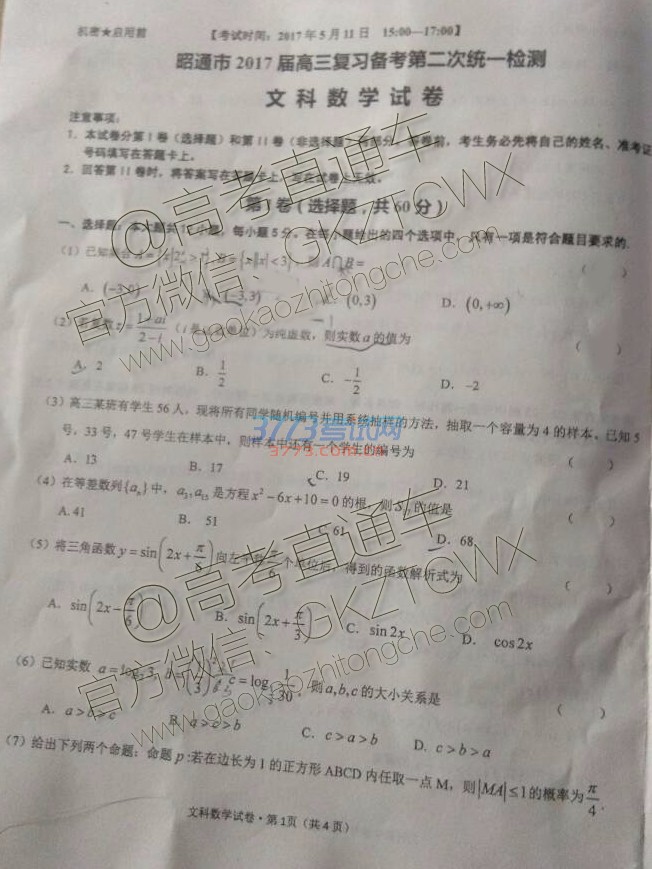 机密★启用前 【考试时间：2017年5月11日 15:00—17:00】
昭通市2017届高三复习备考第二次统一检测
文科数学试卷
注意事项：
1．本试卷分第I卷（选择题）和第II卷（非选择题）两部分。答卷前，考生务必先将自己的姓名、准考证
号码填写在答题卡上。
2．回答第II卷时，将答案写在答题卡上，写在试卷上无效。
第I卷（选择题，共60分）
一、选择题：本大题共12小题，每小题5分。在每小题给出的四个选项中，只有一项是符合题目要求的.
（1）已知集合A= B={x||x|<3}，则A∩B= （ ）
A．(-3,0) B．(-3,3) C．(0,3) D．(0,+∞)
（2）若复数z=(1-ai)/(2-i)（i是虚数单位）为纯虚数，则实数a的值为 （ ）
A．2 B．1/2 C．-1/2 D．-2
（3）高三某班有学生56人，现将所有同学随机编号并用系统抽样的方法，抽取一个容量为4的样本，已知5
号，33号，47号学生在样本中，则样本中还有一个学生的编号为 （ ）
A．13 B．17 C．19 D．21
（4）在等差数列{aₙ}中，a₃,a₁₅是方程x²-6x+10=0的根，则S 的值是 （ ）
A. 41 B．51 C．61 D．68
（5）将三角函数y=sin(2x+π/6)向左平移π/6个单位后，得到的函数解析式为 （ ）
A．sin(2x-π/6) B．sin(2x+π/3) C．sin2x D．cos2x
（6）已知实数 a=log₂3, c=log 1/30，则a,b,c的大小关系是 （ ）
A．a>b>c B．a>c>b C．c>a>b D．c>b>a
（7）给出下列两个命题：命题p:若在边长为1的正方形ABCD内任取一点M，则|MA|≤1的概率为π/4.
文科数学试卷·第1页（共4页）
@高考直通车
官方微信：GKZTCWX
www.gaokaozhitongche.com
3773考试网
3773.com.cn
@高考直通车
官方微信：GKZTCWX
www.gaokaozhitongche.com